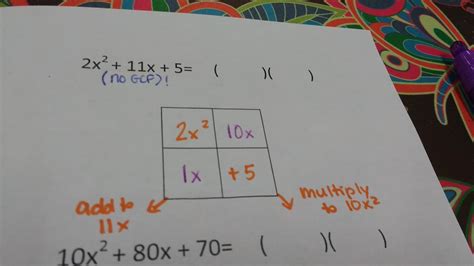 2x² + 11x + 5= (   )(   )
(no GCF)!
2x² 10x
1x +5
add to
11x
multiply
to 10x²
10x² + 80x + 70= (   )(   )